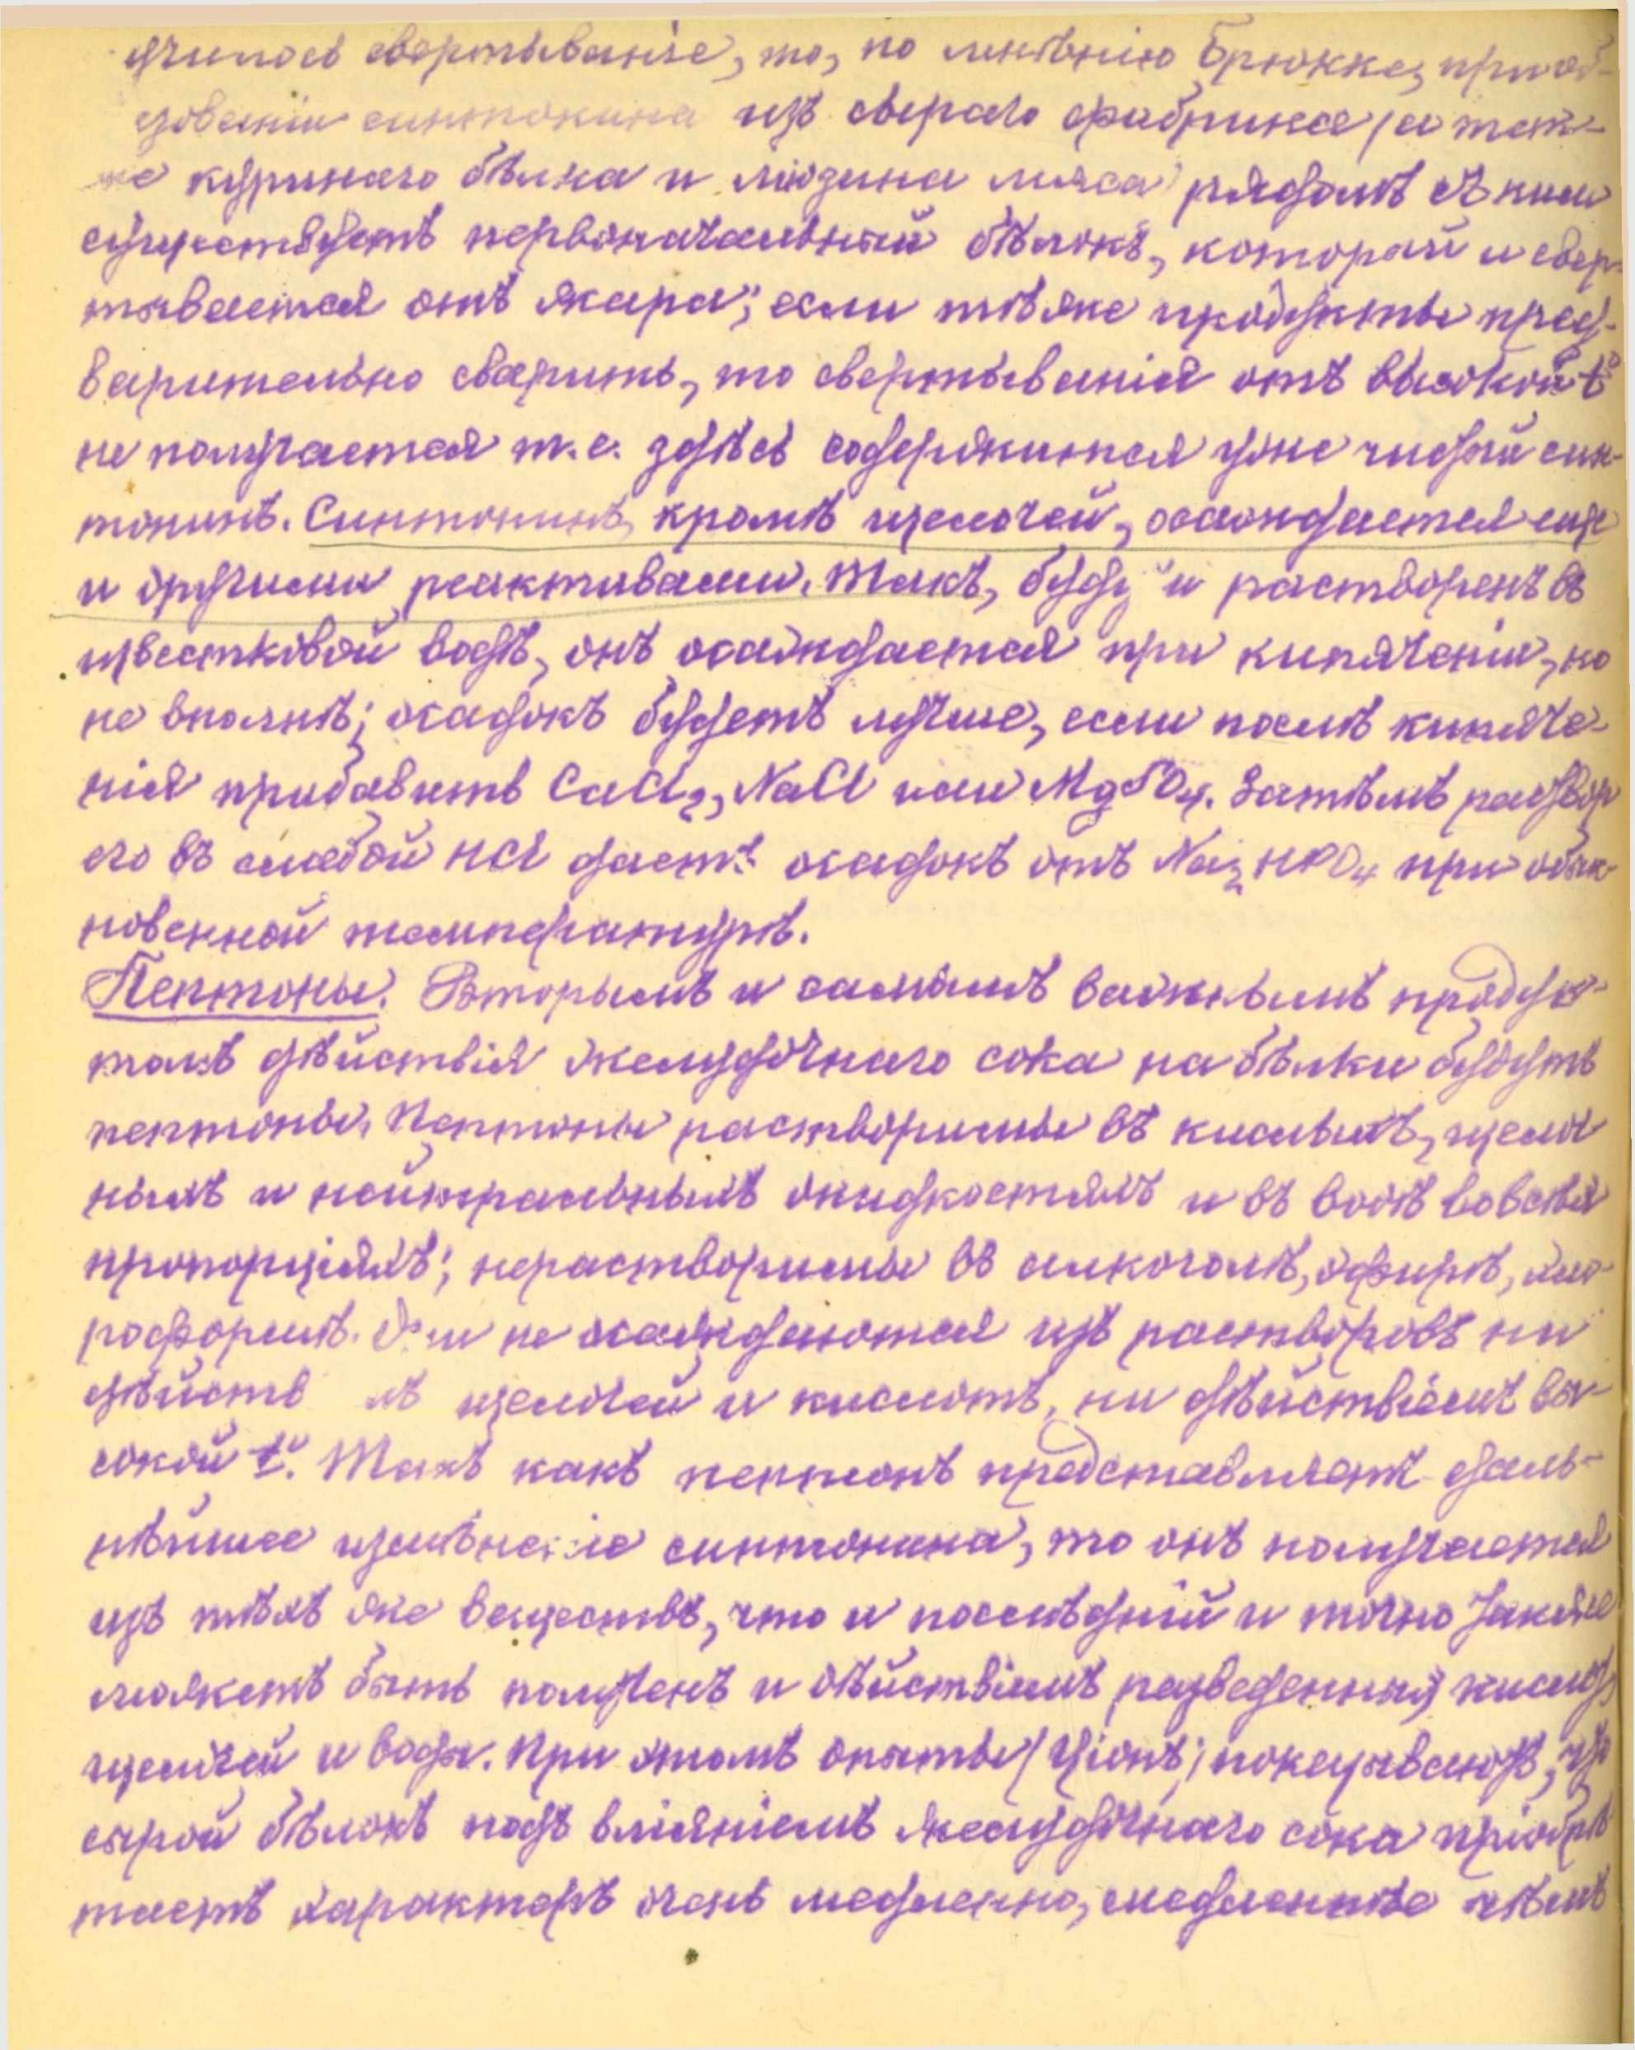 училось свертыванiе, то, по мнѣнiю Брюкке, при об-
зованiи синтонина изъ сыраго фибрина (а так-
же куринаго бѣлка и мiозина мяса) рядомъ съ ним
существуетъ первоначальный бѣлокъ, который и свер-
тывается отъ жара; если тѣже продукты пред-
варительно сварить, то свертыванiя отъ высокой t°
не получается т. е. здѣсь содержится уже чистый син-
тонинъ. Синтонинъ, кромѣ щелочей, осаждается еще
и другими реактивами. Такъ, будучи растворенъ въ
известковой водѣ, онъ осаждается при кипяченiи, но
не вполнѣ; осадокъ будетъ лучше, если послѣ кипяче-
нiя прибавить CaCl2, NaCl или MgSO4. Затѣмъ раствор
его въ слабой HCl даетъ осадокъ отъ Na2HPO4 при обык-
новенной температурѣ.
Пептоны. Вторымъ и самымъ важнымъ продук-
томъ дѣйствiя желудочнаго сока на бѣлки будутъ
пептоны. Пептоны растворимы въ кислыхъ, щелоч
ныхъ и нейтральныхъ жидкостяхъ и въ водѣ во всѣхъ
пропорцiяхъ; нерастворимы въ алкоголѣ, эфирѣ, хло-
роформѣ. Они не осаждаются изъ растворовъ ни
дѣйств мъ щелочей и кислотъ, ни дѣйствiемъ вы-
сокой t°. Такъ какъ пептонъ представляетъ даль-
нѣйшее измѣненiе синтонина, то онъ получается
изъ тѣхъ же веществъ, что и послѣднiй и точно также
можетъ быть полученъ и дѣйствiемъ разведенныхъ кислотъ
щелочей и воды. При этомъ опыты (Цiонъ) показываютъ, что
сырой бѣлокъ подъ влiянiемъ желудочнаго сока прiобрѣ
таетъ характеръ очень медленно, медленнѣе чѣмъ